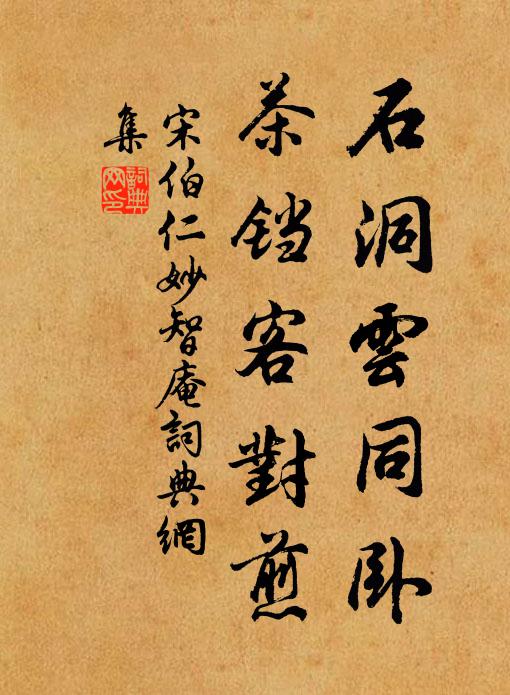 石洞雲同卧
茶铛客對煎
宋伯仁妙智庵詞典網
集
詞典網印